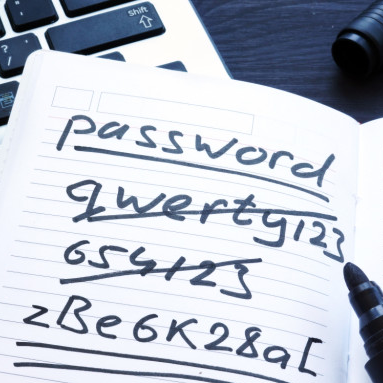 Shift
password
qwerty123
654123
zBe6K28a[